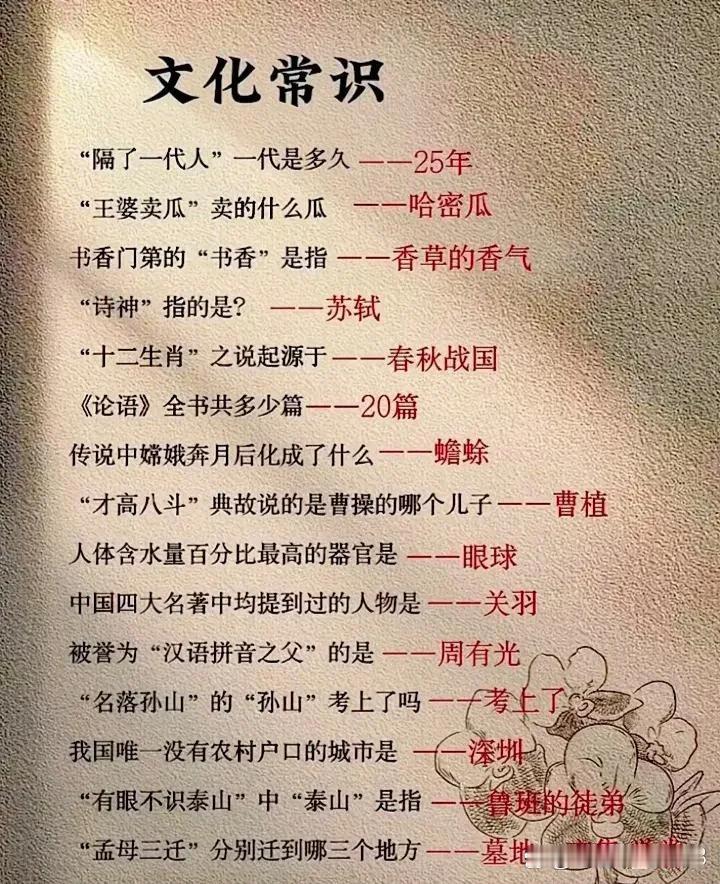 文化常识
“隔了一代人”一代是多久——25年
“王婆卖瓜”卖的什么瓜 ——哈密瓜
书香门第的“书香”是指——香草的香气
“诗神”指的是？ ——苏轼
“十二生肖”之说起源于——春秋战国
《论语》全书共多少篇——20篇
传说中嫦娥奔月后化成了什么——蟾蜍
“才高八斗”典故说的是曹操的哪个儿子——曹植
人体含水量百分比最高的器官是——眼球
中国四大名著中均提到过的人物是——关羽
被誉为“汉语拼音之父”的是——周有光
“名落孙山”的“孙山”考上了吗——考上了
我国唯一没有农村户口的城市是 ——深圳
“有眼不识泰山”中“泰山”是指——鲁班的徒弟
“孟母三迁”分别迁到哪三个地方——墓地